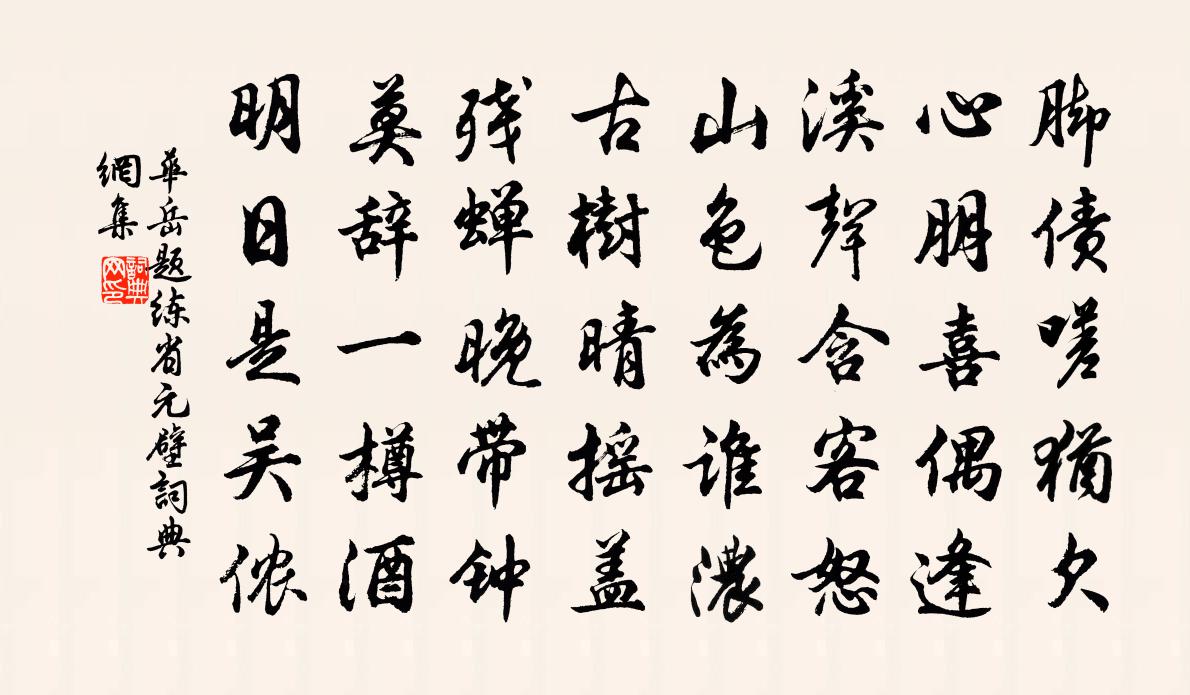 脚债嗟犹欠
心朋喜偶逢
溪聲含客怒
山色為谁濃
古樹晴摇盖
残蝉晚带钟
莫辞一樽酒
明日是吴侬
華岳题练省元壁詞典
網集
詞典網印